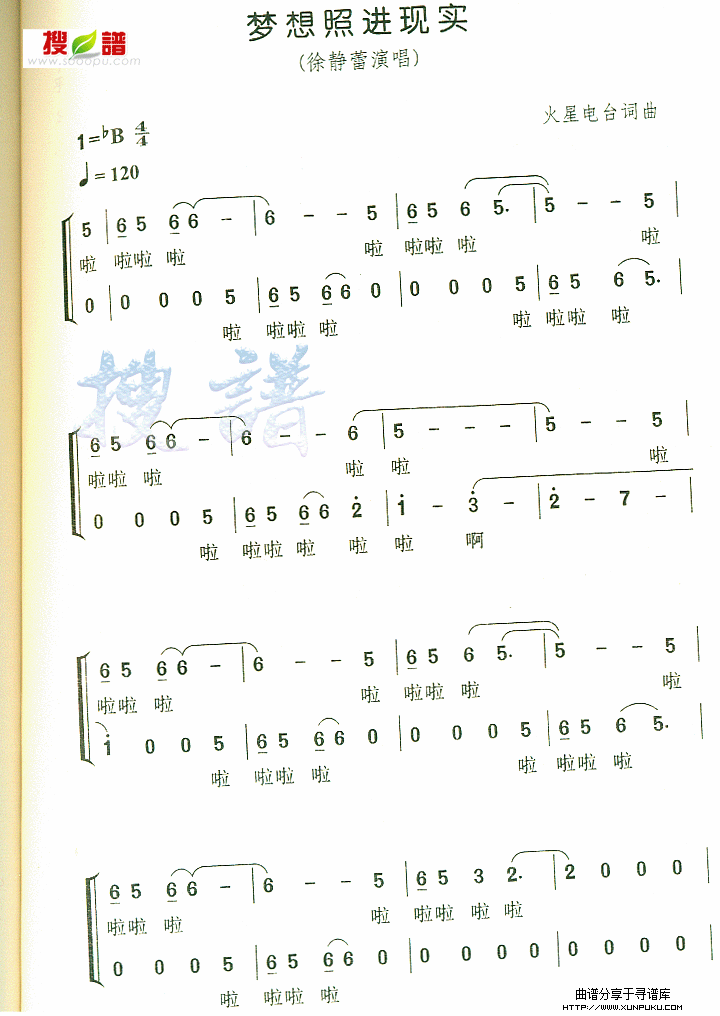 搜谱
www.sooopu.com
梦想照进现实
(徐静蕾演唱)
火星电台词曲
1=♭B 4/4
♩=120
5 | 6 5 6 6 - | 6 - - 5 | 6 5 6 5. | 5 - - 5 |
啦 啦啦 啦 啦 啦啦 啦 啦
0 | 0 0 0 5 | 6 5 6 6 0 | 0 0 0 5 | 6 5 6 5. |
啦 啦啦 啦 啦 啦啦 啦
搜谱
6 5 6 6 - | 6 - - 6 | 5 - - - | 5 - - 5 |
啦啦 啦 啦 啦 啦
0 0 0 5 | 6 5 6 6 2̇ | 1̇ - 3̇ - | 2̇ - 7 - |
啦 啦啦 啦 啦 啦 啊
6 5 6 6 - | 6 - - 5 | 6 5 6 5. | 5 - - 5 |
啦啦 啦 啦 啦啦 啦 啦
1̇ 0 0 5 | 6 5 6 6 0 | 0 0 0 5 | 6 5 6 5. |
啦 啦啦 啦 啦 啦啦 啦
6 5 6 6 - | 6 - - 5 | 6 5 3 2. | 2 0 0 0 |
啦啦 啦 啦 啦啦 啦 啦
0 0 0 5 | 6 5 6 6 0 | 0 0 0 0 | 0 0 0 0 |
啦 啦啦 啦
曲谱分享于寻谱库
HTTP://WWW.XUNPUKU.COM